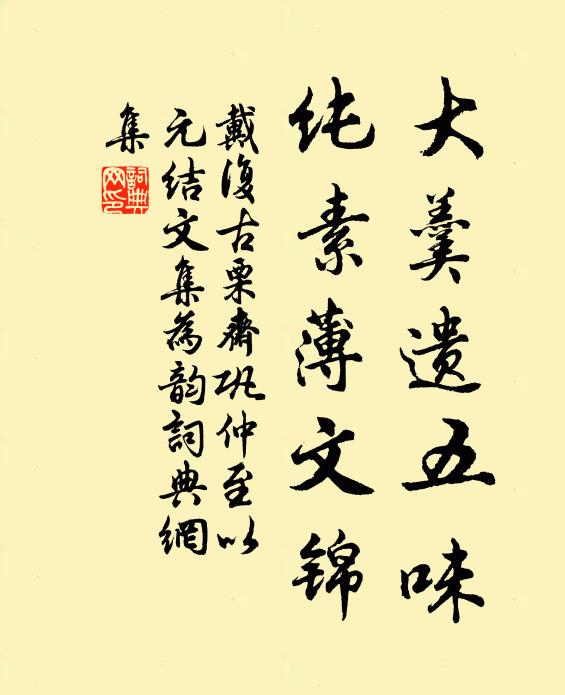 大羹遗五味
纯素薄文锦
戴復古栗齋巩仲至以
元结文集為韵詞典網
集
詞典网印